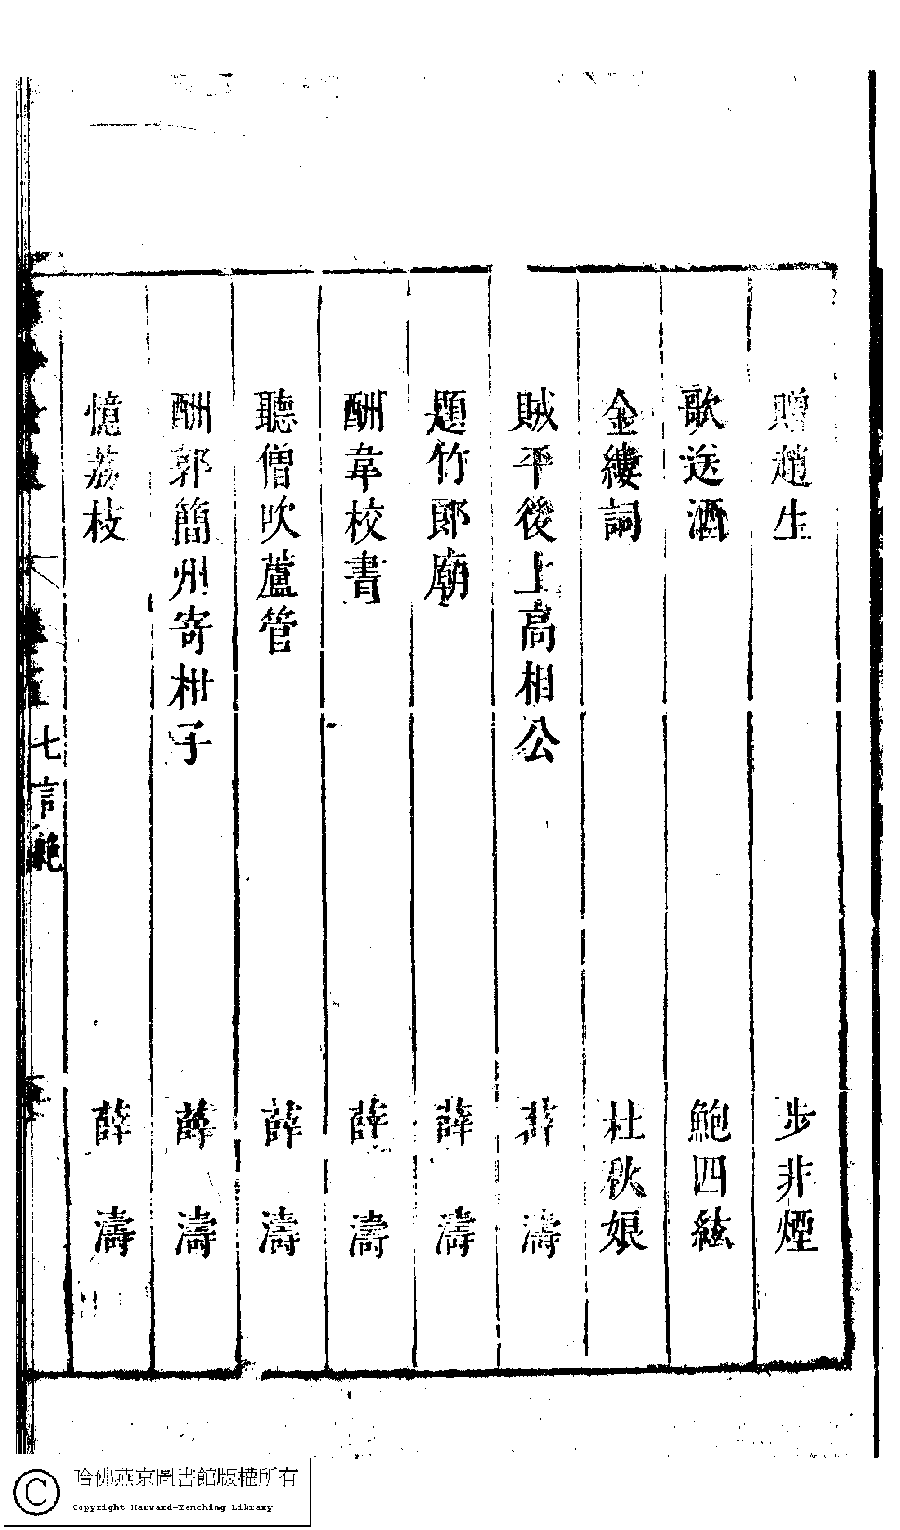 贈趙生 步非煙
歌送酒 鮑四絃
金縷詞 杜秋娘
賊平後上高相公 薛濤
題竹郎廟 薛濤
酬韋校書 薛濤
聽僧吹蘆管 薛濤
酬郭簡州寄柑子 薛濤
憶荔枝 薛濤
七言絶
哈佛燕京圖書館版權所有
Copyright Harvard-Yenching Library